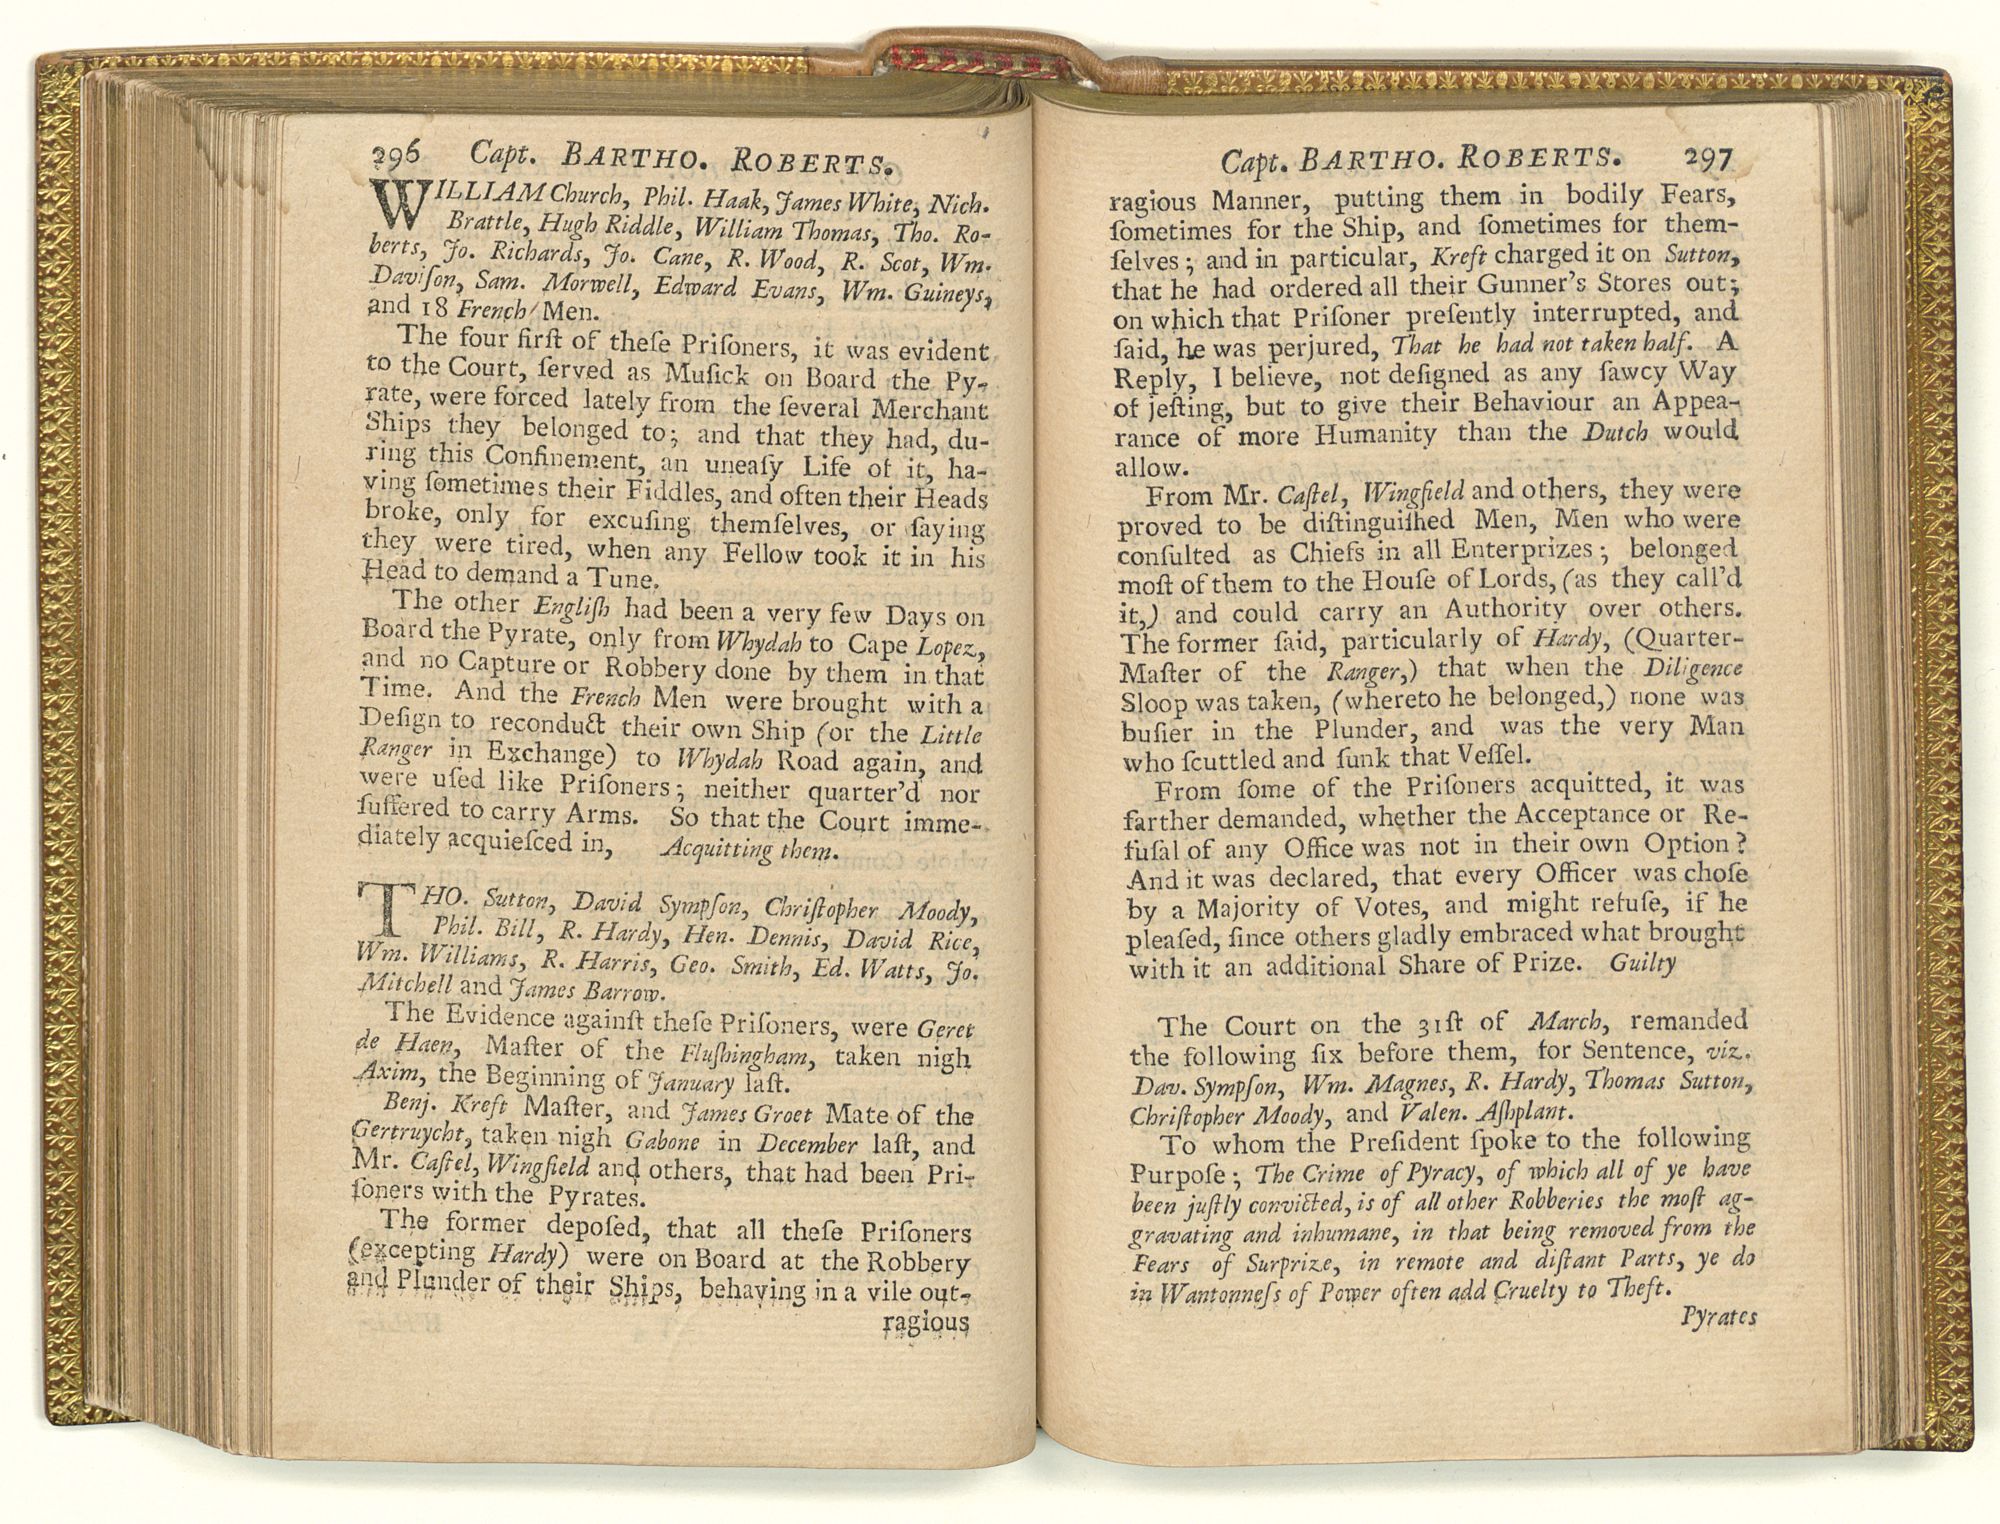 296 Capt. BARTHO. ROBERTS.
WILLIAM Church, Phil. Haak, James White, Nich.
Brattle, Hugh Riddle, William Thomas, Tho. Ro-
berts, Jo. Richards, Jo. Cane, R. Wood, R. Scot, Wm.
Daviſon, Sam. Morwell, Edward Evans, Wm. Guineys,
and 18 French Men.
The four firſt of theſe Priſoners, it was evident
to the Court, ſerved as Muſick on Board the Py-
rate, were forced lately from the ſeveral Merchant
Ships they belonged to; and that they had, du-
ring this Confinement, an uneaſy Life of it, ha-
ving ſometimes their Fiddles, and often their Heads
broke, only for excuſing themſelves, or ſaying
they were tired, when any Fellow took it in his
Head to demand a Tune.
The other Engliſh had been a very few Days on
Board the Pyrate, only from Whydah to Cape Lopez,
and no Capture or Robbery done by them in that
Time. And the French Men were brought with a
Deſign to reconduct their own Ship (or the Little
Ranger in Exchange) to Whydah Road again, and
were uſed like Priſoners; neither quarter'd nor
ſuffered to carry Arms. So that the Court imme-
diately acquieſced in, Acquitting them.
THO. Sutton, David Sympſon, Chriſtopher Moody,
Phil. Bill, R. Hardy, Hen. Dennis, David Rice,
Wm. Williams, R. Harris, Geo. Smith, Ed. Watts, Jo.
Mitchell and James Barrow.
The Evidence againſt theſe Priſoners, were Geret
de Haen, Maſter of the Fluſhingham, taken nigh
Axim, the Beginning of January laſt.
Benj. Kreft Maſter, and James Groet Mate of the
Gertruycht, taken nigh Gabone in December laſt, and
Mr. Caſtel, Wingfield and others, that had been Pri-
ſoners with the Pyrates.
The former depoſed, that all theſe Priſoners
(excepting Hardy) were on Board at the Robbery
and Plunder of their Ships, behaving in a vile out-
ragious
Capt. BARTHO. ROBERTS. 297
ragious Manner, putting them in bodily Fears,
ſometimes for the Ship, and ſometimes for them-
ſelves; and in particular, Kreft charged it on Sutton,
that he had ordered all their Gunner's Stores out;
on which that Priſoner preſently interrupted, and
ſaid, he was perjured, That he had not taken half. A
Reply, I believe, not deſigned as any ſawcy Way
of jeſting, but to give their Behaviour an Appea-
rance of more Humanity than the Dutch would
allow.
From Mr. Caſtel, Wingfield and others, they were
proved to be diſtinguiſhed Men, Men who were
conſulted as Chiefs in all Enterprizes; belonged
moſt of them to the Houſe of Lords, (as they call'd
it,) and could carry an Authority over others.
The former ſaid, particularly of Hardy, (Quarter-
Maſter of the Ranger,) that when the Diligence
Sloop was taken, (whereto he belonged,) none was
buſier in the Plunder, and was the very Man
who ſcuttled and ſunk that Veſſel.
From ſome of the Priſoners acquitted, it was
farther demanded, whether the Acceptance or Re-
fuſal of any Office was not in their own Option?
And it was declared, that every Officer was choſe
by a Majority of Votes, and might refuſe, if he
pleaſed, ſince others gladly embraced what brought
with it an additional Share of Prize. Guilty
The Court on the 31ſt of March, remanded
the following ſix before them, for Sentence, viz.
Dav. Sympſon, Wm. Magnes, R. Hardy, Thomas Sutton,
Chriſtopher Moody, and Valen. Aſhplant.
To whom the Preſident ſpoke to the following
Purpoſe; The Crime of Pyracy, of which all of ye have
been juſtly convicted, is of all other Robberies the moſt ag-
gravating and inhumane, in that being removed from the
Fears of Surprize, in remote and diſtant Parts, ye do
in Wantonneſs of Power often add Cruelty to Theft.
Pyrates